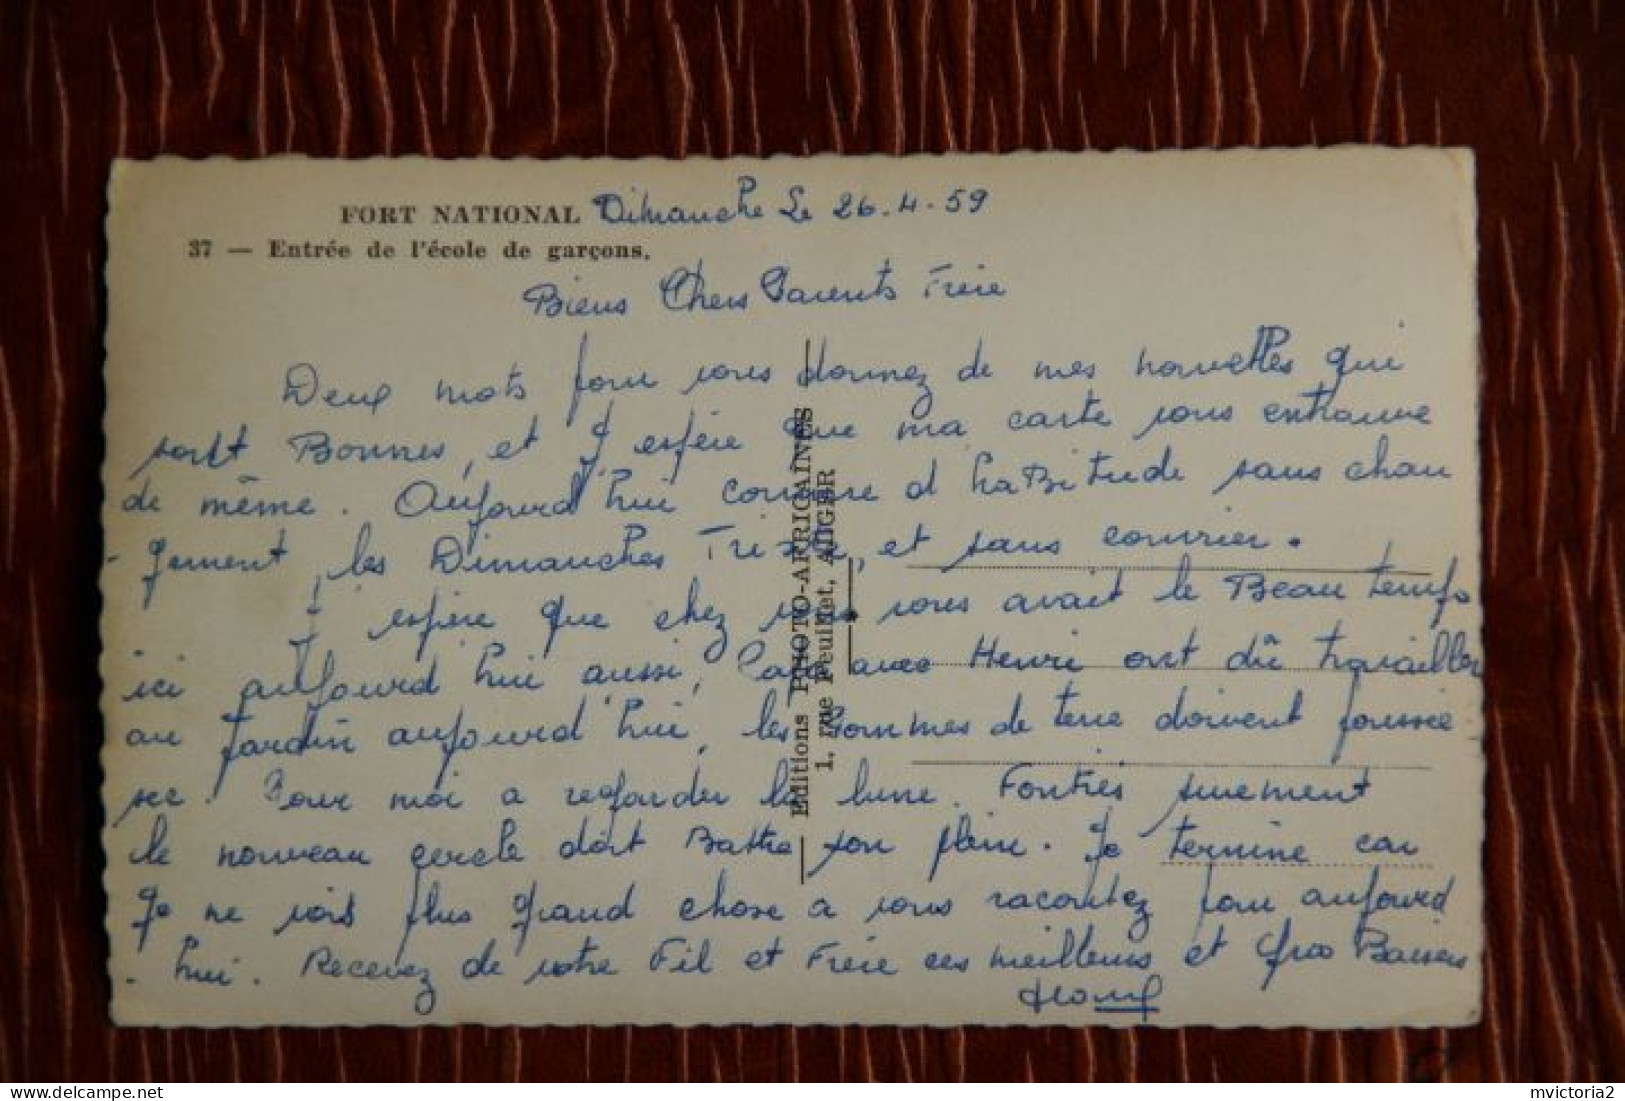 FORT NATIONAL Dimanche Le 26.4.59
37 — Entrée de l'école de garçons.
Biens Chers Parents Frère
Deux mots pour vous donnez de mes nouvelles qui
sont Bonnes, et J espère que ma carte vous entrauve
de même. Aujourd'hui comme d haBitude sans chan
- gement, les Dimanches Triste, et sans courrier.
J espère que chez vous vous avait le Beau temps
ici aujourd hui aussi, avec Henri ont dû travailler
au Jardin aujourd'hui, les Pommes de terre doivent poussée
Pour moi a regarder la lune.
le nouveau cercle doit Battre son plein. Je termine car
Je ne vois plus grand chose a vous racontez pour aujourd
- hui. Recevez de votre Fil et Frère ces meilleurs et Gros Baisers
Editions PHOTO-AFRICAINES
1, rue Feuillet, ALGER
mvictoria2